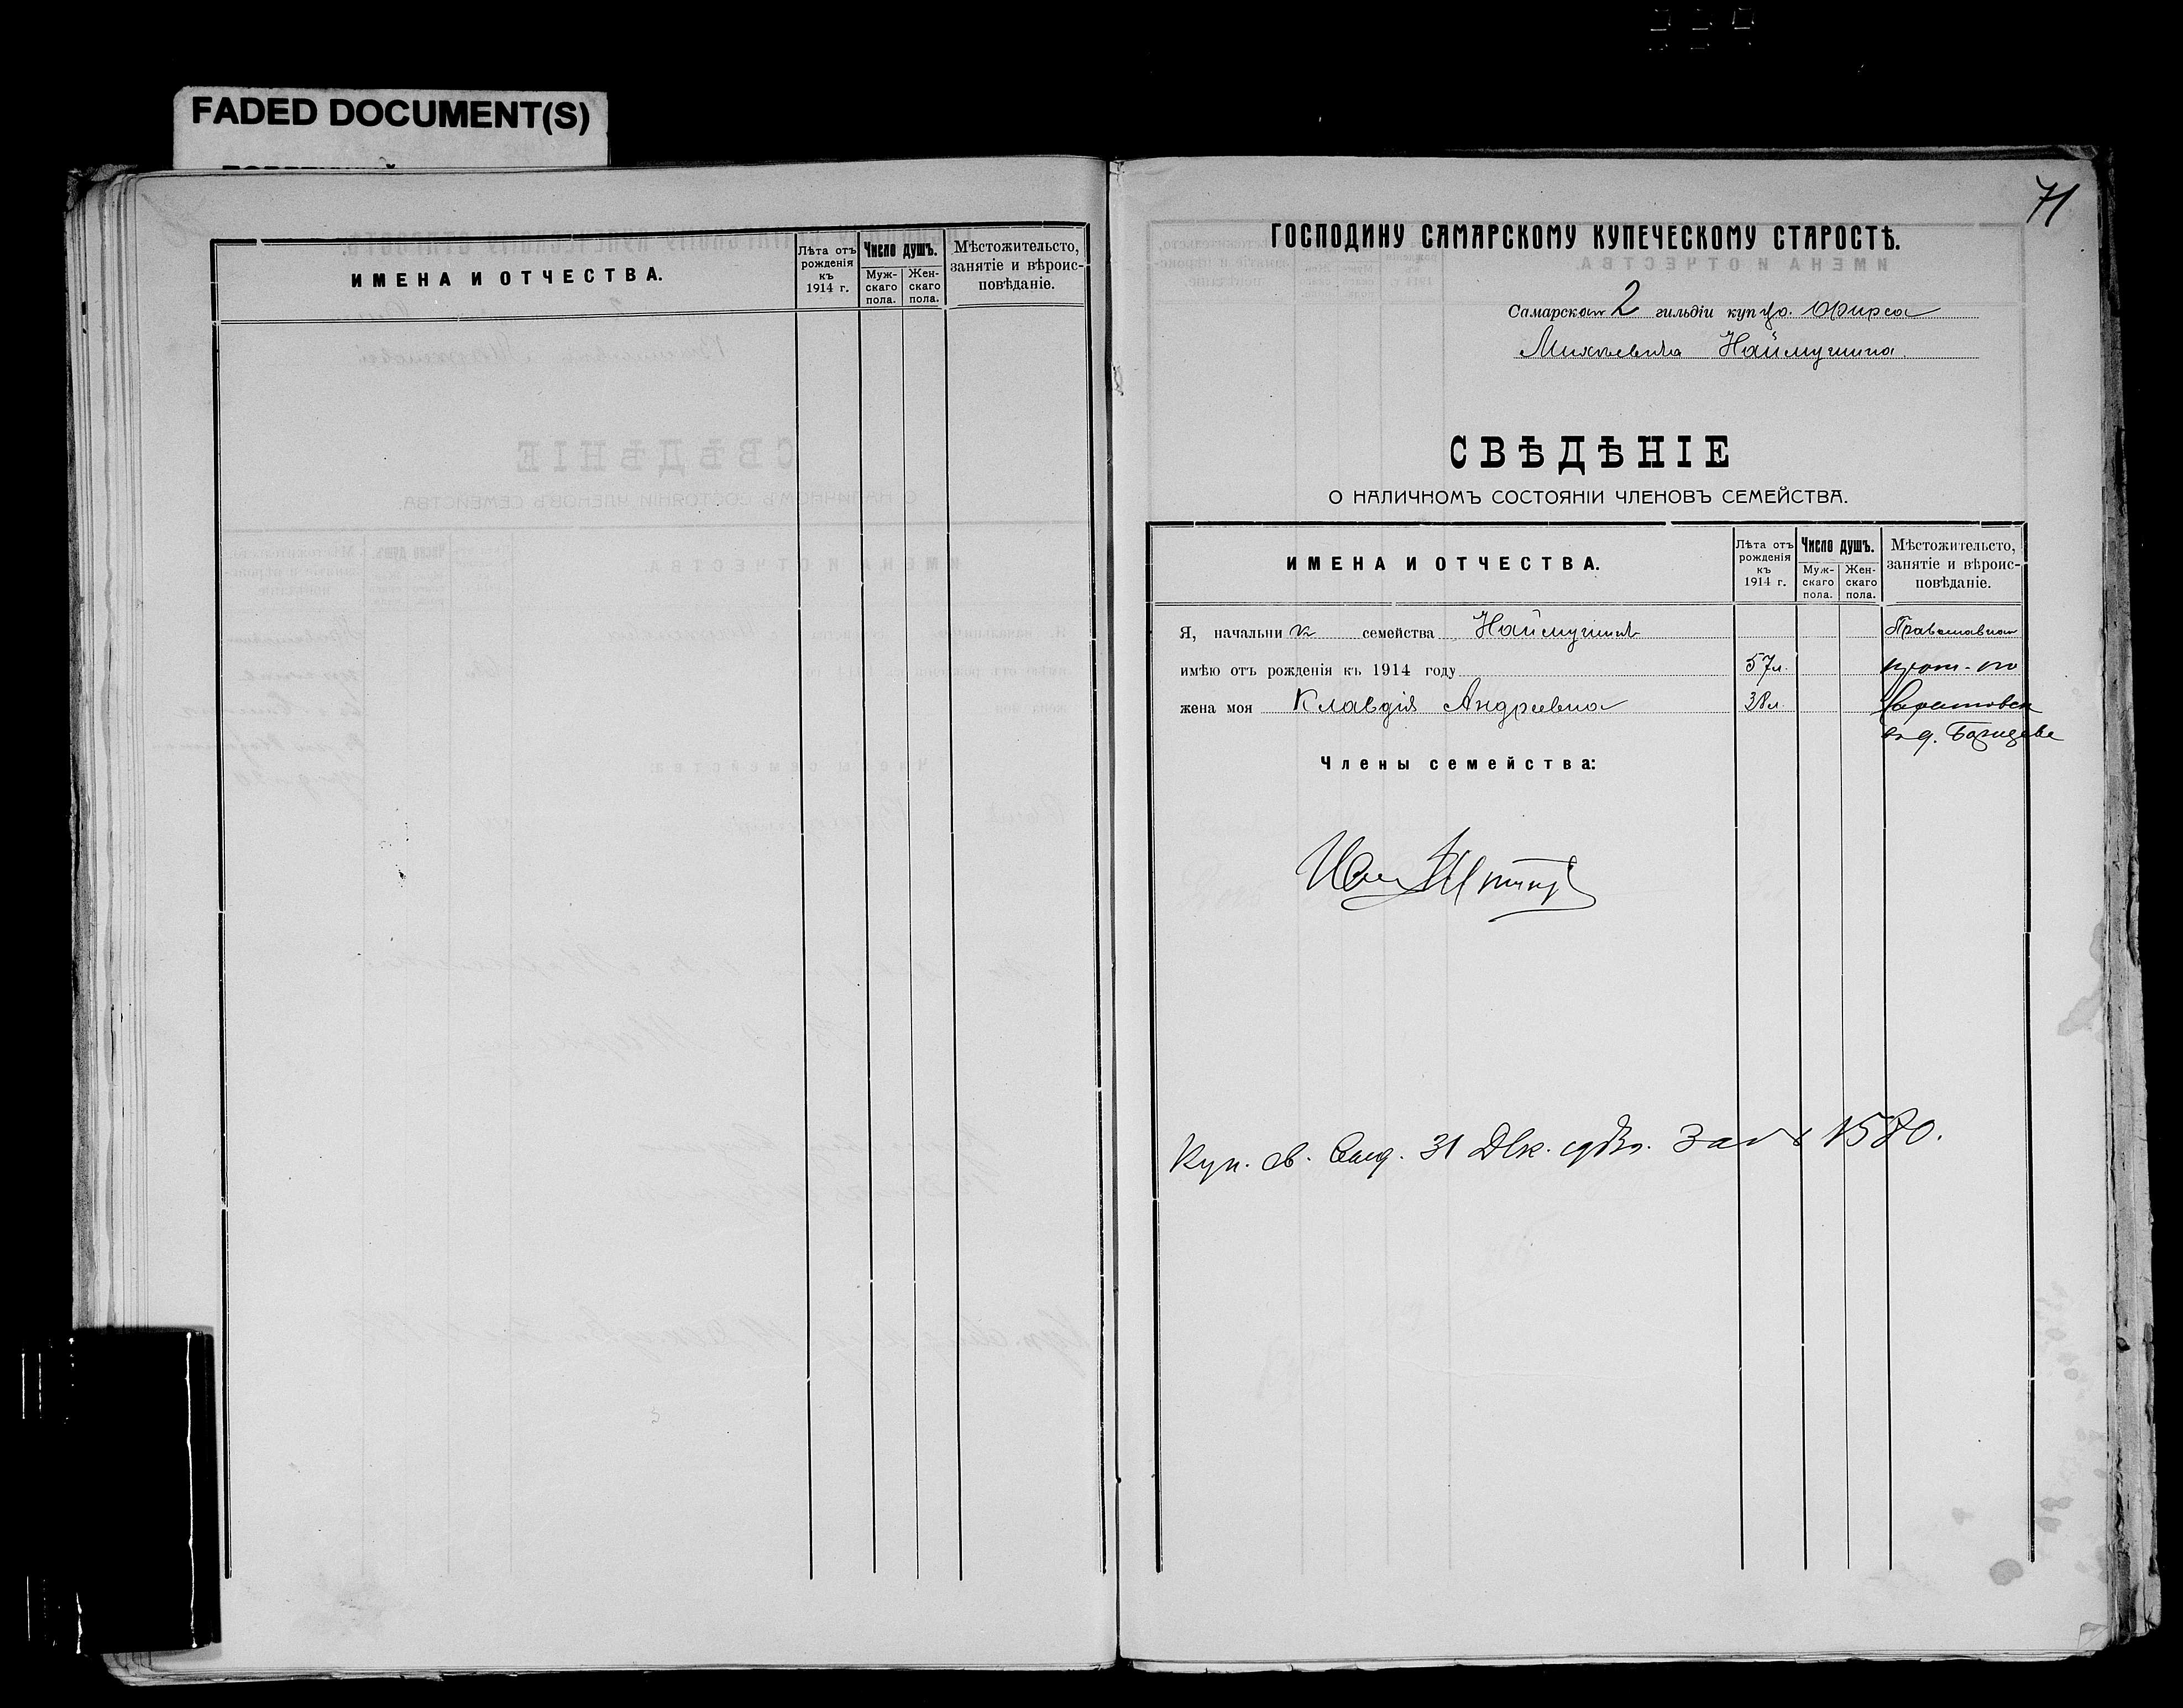 FADED DOCUMENT(S)
71
ИМЕНА И ОТЧЕСТВА.
Лѣта отъ рожденія къ 1914 г.
Число душъ.
Муж-скаго пола.
Жен-скаго пола.
Мѣстожительсто, занятіе и вѣроис-повѣданіе.
ГОСПОДИНУ САМАРСКОМУ КУПЕЧЕСКОМУ СТАРОСТѢ.
Самарскаго 2 гильдіи купца Фирса
Наймушина
СВѢДѢНІЕ
О НАЛИЧНОМЪ СОСТОЯНІИ ЧЛЕНОВЪ СЕМЕЙСТВА.
ИМЕНА И ОТЧЕСТВА.
Лѣта отъ рожденія къ 1914 г.
Число душъ.
Муж-скаго пола.
Жен-скаго пола.
Мѣстожительсто, занятіе и вѣроис-повѣданіе.
Я, начальник семейства Наймушинъ
имѣю отъ рожденія къ 1914 году 57 л.
жена моя Клавдія Андреевна 38 л.
Члены семейства:
Куп. св. выд. 31 Дек. 1913 г. за № 1580.